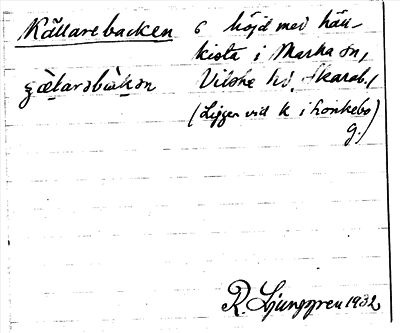 Källarebacken 6 höjd med häll-
kista i Marka sn,
Vilske hd. Skarab.,
(Ligger vid K i honkebo
g.)
R. Ljunggren 1932